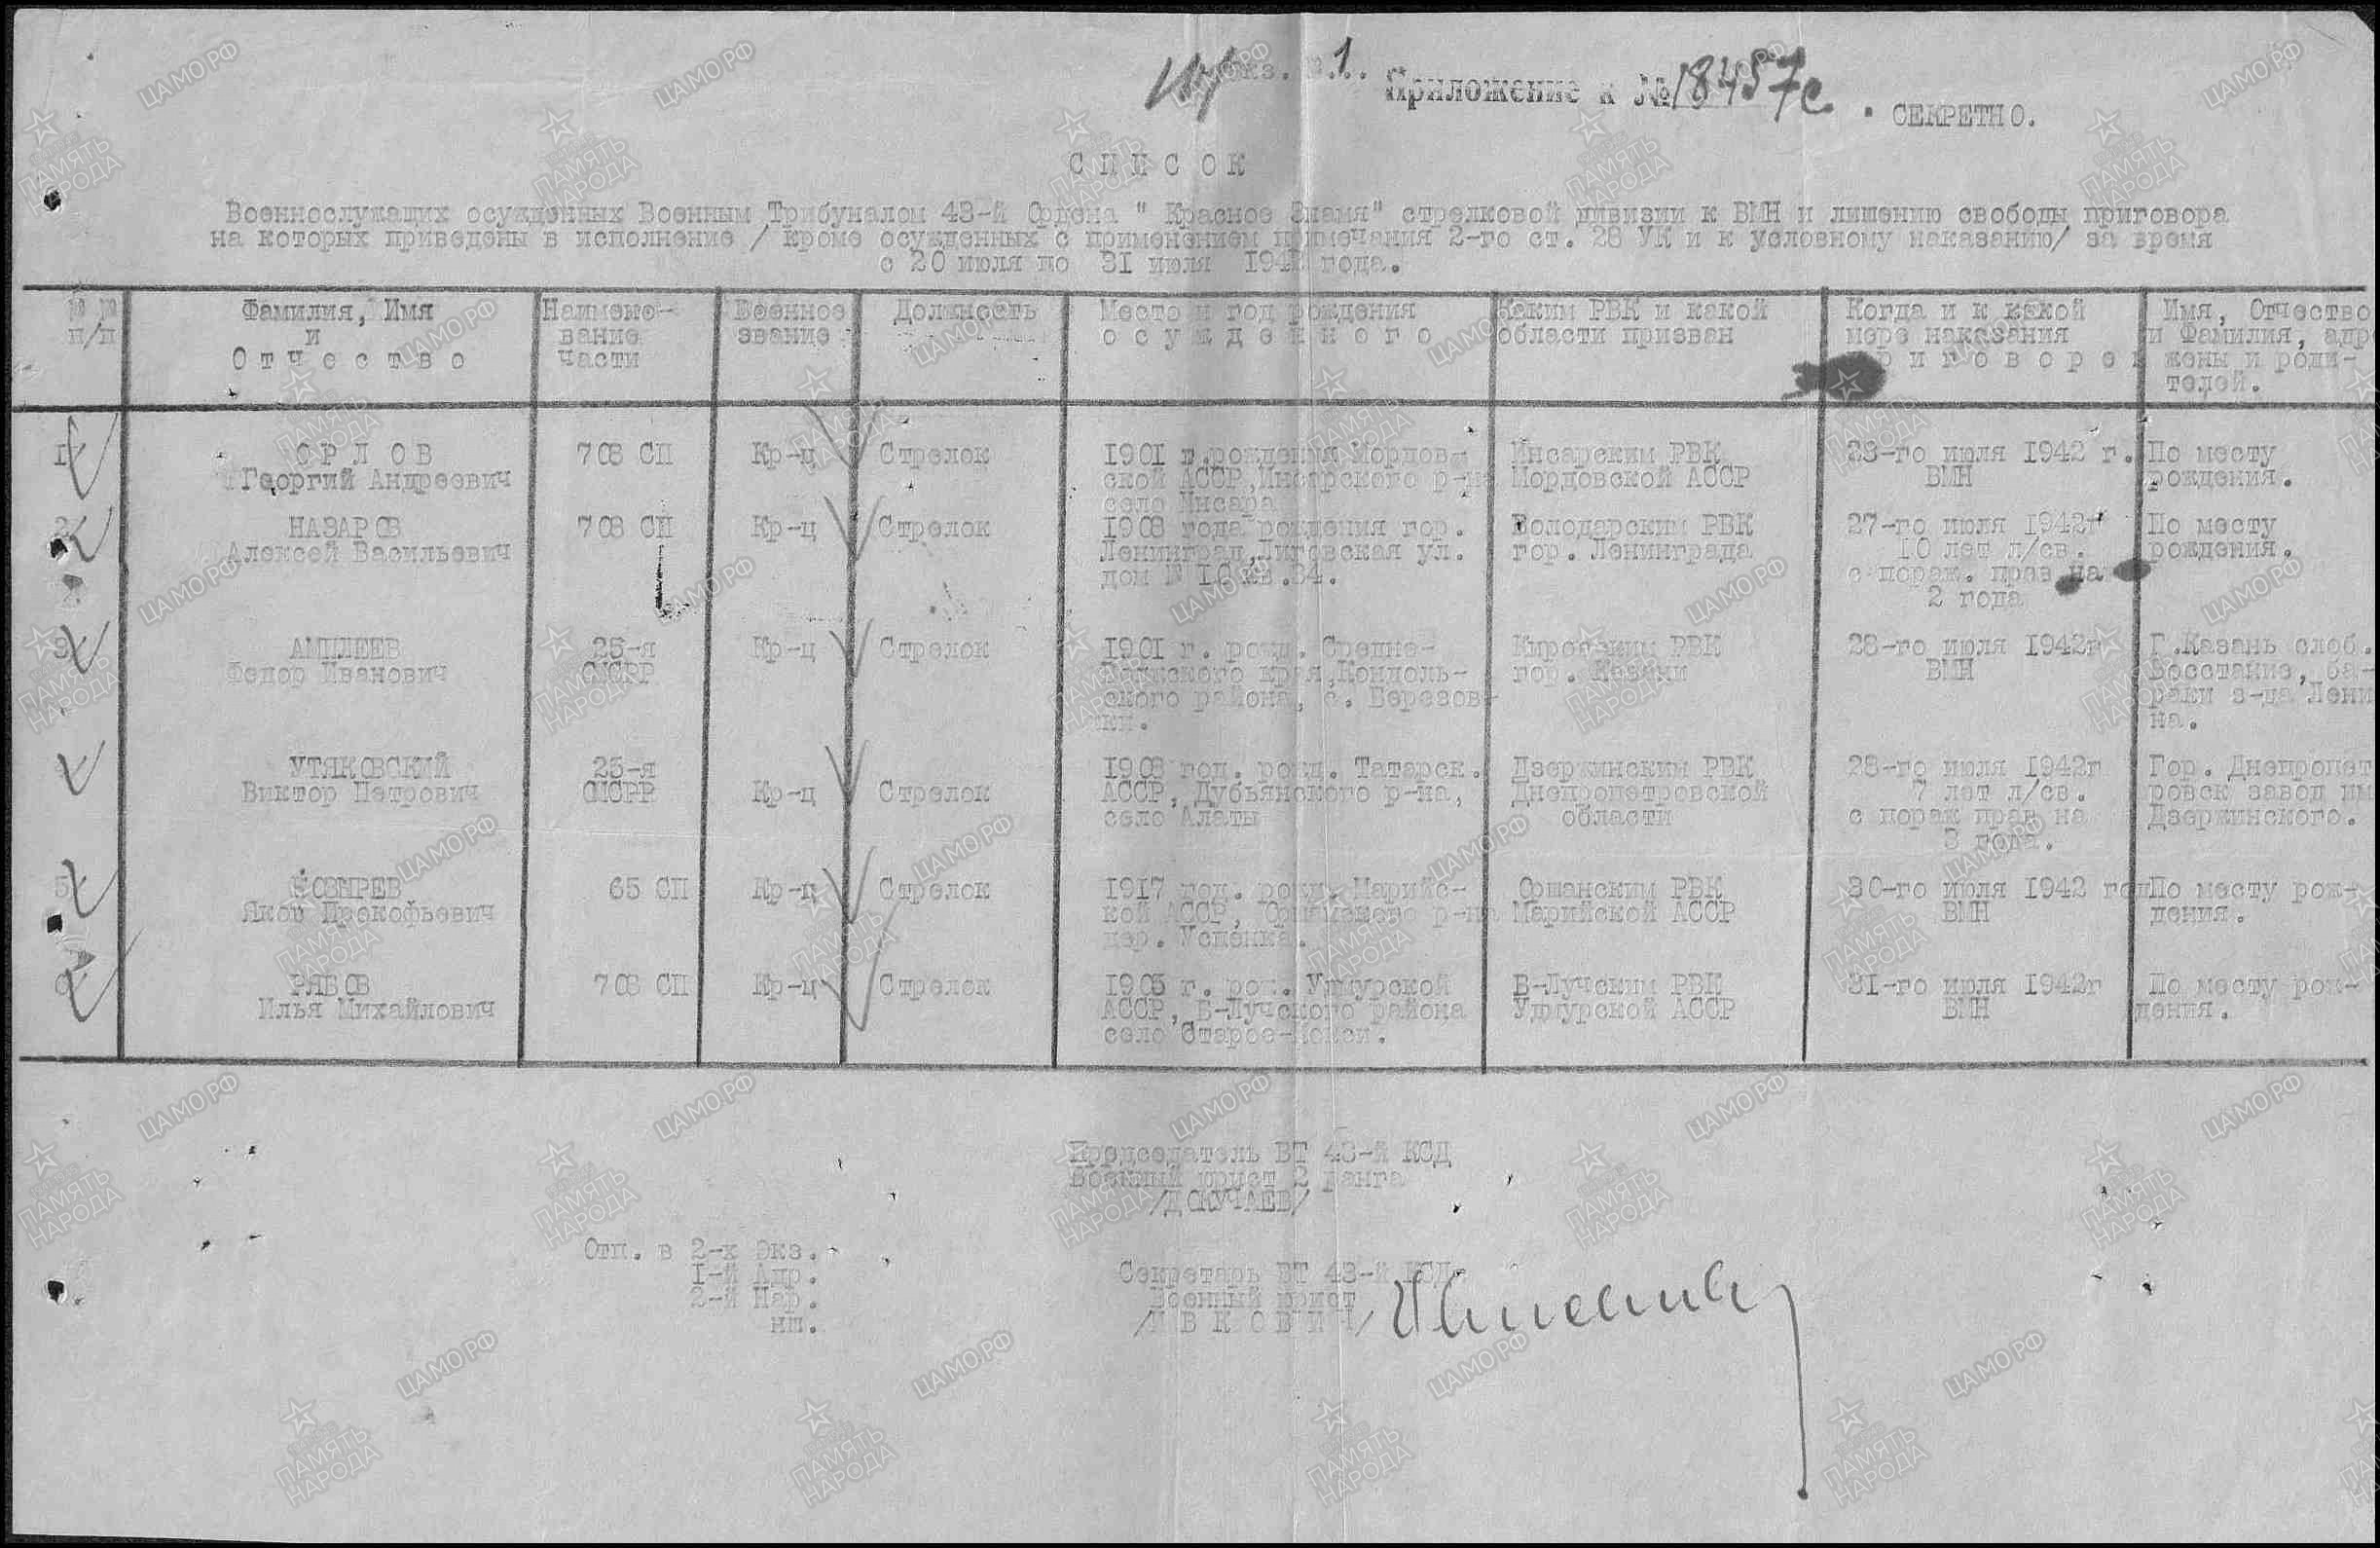 Экз. №.1.
Приложение к № 18457с
СЕКРЕТНО.
СПИСОК
Военнослужащих осужденных Военным Трибуналом 43-й Ордена " Красное Знамя" стрелковой дивизии к ВМН и лишению свободы приговора
на которых приведены в исполнение / кроме осужденных с применением примечания 2-го ст. 28 УК и к условному наказанию/ за время
с 20 июля по 31 июля 1942 года.
№ №
п/п
Фамилия, Имя
и
Отчество
Наимено-
вание
части
Военное
звание
Должность
Место и год рождения
осужденного
Каким РВК и какой
области призван
Когда и к какой
мере наказания
приговорен
Имя, Отчество
и Фамилия, адр
жены и роди-
телей.
1
ОРЛОВ
Георгий Андреевич
708 СП
Кр-ц
Стрелок
1901 г.рождения Мордов-
ской АССР, Инсарского р-на
село Инсара
Инсарским РВК
Мордовской АССР
23-го июля 1942 г.
ВМН
По месту
рождения.
2
НАЗАРОВ
Алексей Васильевич
708 СП
Кр-ц
Стрелок
1908 года рождения гор.
Ленинград, Лиговская ул.
дом № 10 кв.34.
Володарским РВК
гор. Ленинграда
27-го июля 1942г
10 лет л/св.
с пораж. прав на
2 года
По месту
рождения.
3
АМПЛЕЕВ
Федор Иванович
25-я
ОМСРР
Кр-ц
Стрелок
1901 г. рожд. Средне-
Волжского края, Кондоль-
ского района, с. Березов-
ки.
Кировским РВК
гор. Казани
28-го июля 1942г
ВМН
Г.Казань слоб.
Восстание, ба-
раки з-да Лени
на.
УТЯКОВСКИЙ
Виктор Петрович
25-я
ОМСРР
Кр-ц
Стрелок
1908 год. рожд. Татарск.
АССР, Дубьянского р-на,
село Алаты
Дзержинским РВК
Днепропетровской
области
28-го июля 1942г
7 лет л/св.
с пораж прав на
3 года.
Гор. Днепропет
ровск завод им
Дзержинского.
5
КОЗЫРЕВ
Яков Прокофьевич
65 СП
Кр-ц
Стрелок
1917 год. рожд. Марийс-
кой АССР, Оршанского р-на
дер. Успенка.
Оршанским РВК
Марийской АССР
30-го июля 1942 год
ВМН
По месту рож-
дения.
6
РЯБОВ
Илья Михайлович
708 СП
Кр-ц
Стрелок
1905 г. рож. Удмурской
АССР, В-Лучского района
село Старое-
В-Лучским РВК
Удмурской АССР
31-го июля 1942г
ВМН
По месту рож-
дения.
Председатель ВТ 43-й КСД
Военный юрист 2 ранга
/ДОКУЧАЕВ/
Отп. в 2-х Экз.
1-й Адр.
2-й Нар.
нп.
Секретарь ВТ 43-й КСД
Военный юрист
/ИВКОВИЧ/
ЦАМО.РФ
ПАМЯТЬ
НАРОДА